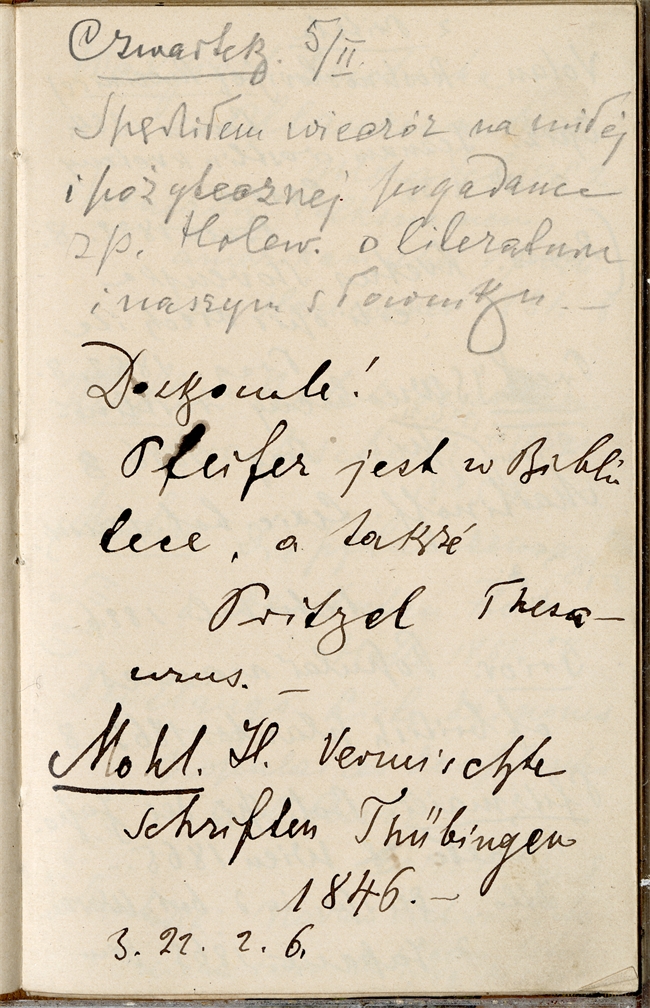 Czwartek. 5/II.
Spędziłem wieczór na miłej
i pożytecznej pogadance
z p. Holew. o literaturze
i naszym słowniku. —
Doskonale!
Pfeifer jest w Biblio
tece, a także
Pritzel Thesa—
urus. —
Mohl. H. Vermischte
Schriften Thübingen
1846. —
3. 22. 2. 6.